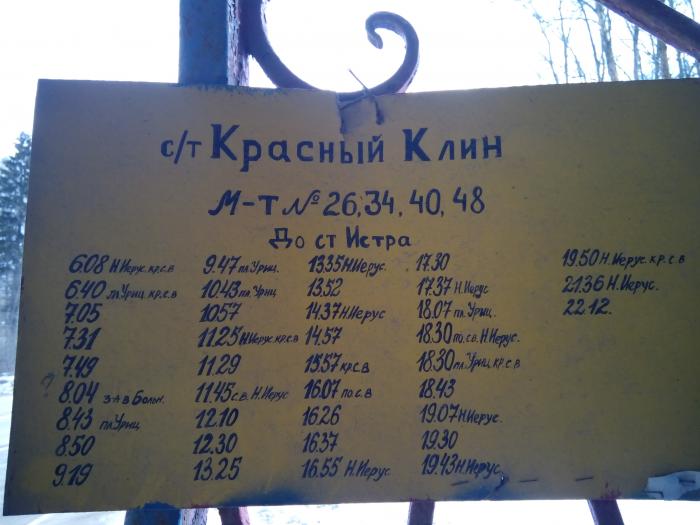 с/т Красный Клин
М-Т № 26, 34, 40, 48
До ст Истра
6.08 Н.Иерус. кр.с.в
6.40 пл.Уриц. кр.с.в
7.05
7.31
7.49
8.04 з-д в Больн.
8.43 пл.Уриц
8.50
9.19
9.47 пл.Уриц.
10.43 пл.Уриц
10.57
11.25 Н.Иерус. кр.с.в
11.29
11.45 с.в. Н.Иерус
12.10
12.30
13.25
13.35 Н.Иерус.
13.52
14.37 Н.Иерус
14.57
15.57 кр.с.в
16.07 по с.в
16.26
16.37
16.55 Н.Иерус.
17.30
17.37 Н.Иерус
18.07 пл.Уриц.
18.30 по.св.Н.Иерус.
18.30 пл.Уриц кр.с.в
18.43
19.07 Н.Иерус.
19.30
19.43 Н.Иерус.
19.50 Н.Иерус. кр.с.в
21.36 Н.Иерус.
22.12.